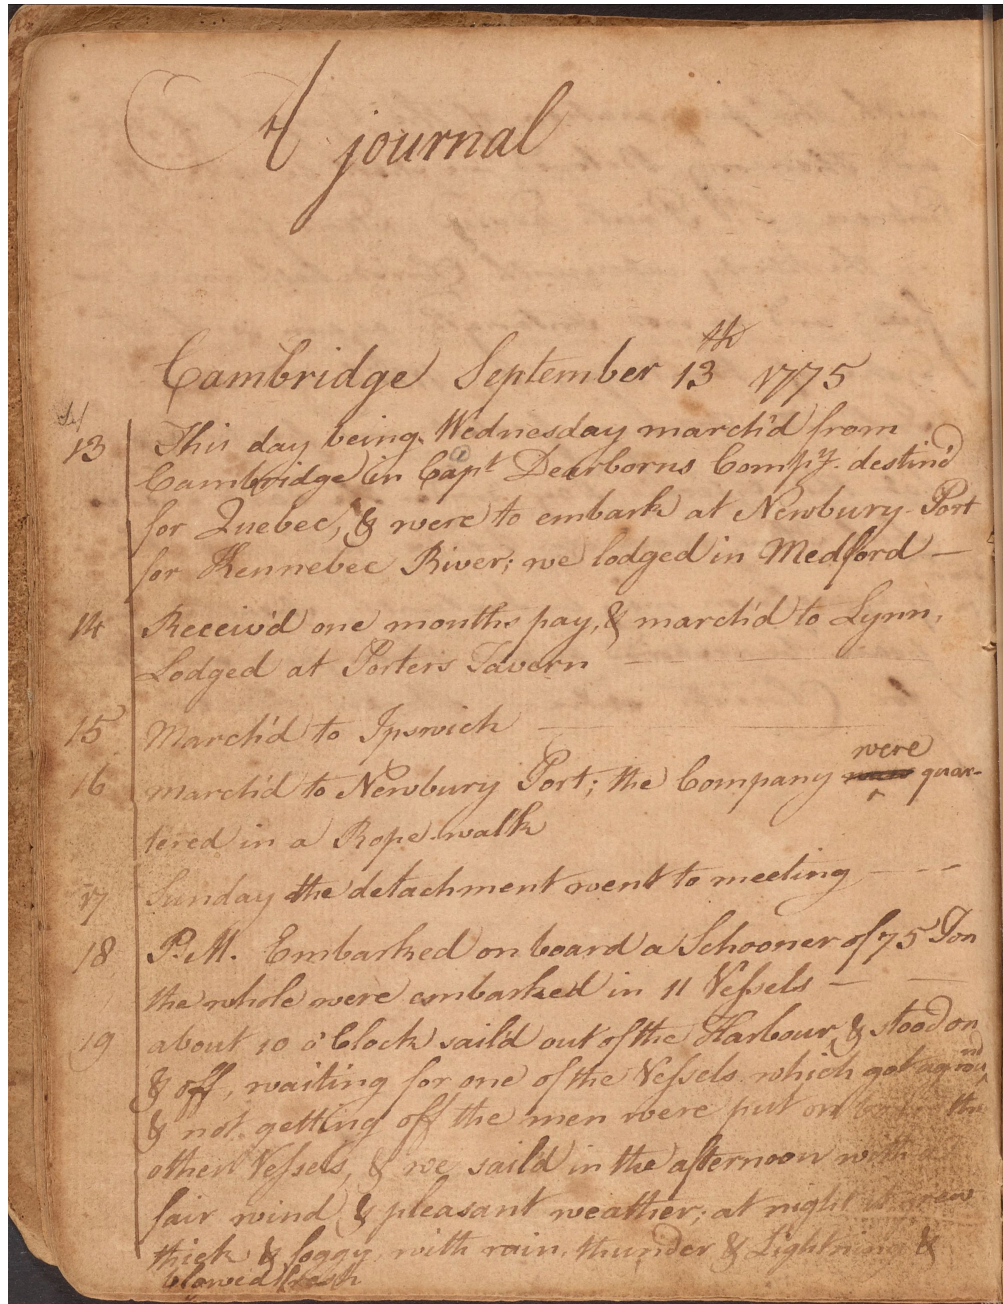 A journal
Cambridge September 13th 1775
13 This day being Wednesday march'd from
Cambridge in Capt Dearborns Compy. destin'd
for Quebec, & were to embark at Newbury-Port
for Kennebec River; we lodged in Medford —
14 Receiv'd one months pay, & march'd to Lynn,
Lodged at Porters Tavern
15 March'd to Ipswich
were
16 march'd to Newbury Port; the Company quar-
tered in a Rope-walk
17 Sunday the detachment went to meeting
18 P.M. Embarked on board a Schooner of 75 Ton
the whole were embarked in 11 Vessels —
19 about 10 o'Clock sail'd out of the Harbour, & stood on
& off, waiting for one of the Vessels which got aground,
& not getting off the men were put on the
other Vessels, & we sail'd in the afternoon with a
fair wind & pleasant weather; at night it grew
thick & foggy, with rain, thunder & Lightning &
blowed fresh